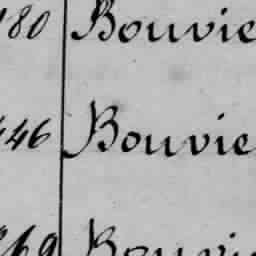 180 Bouvie
446 Bouvie
269 Bouvie